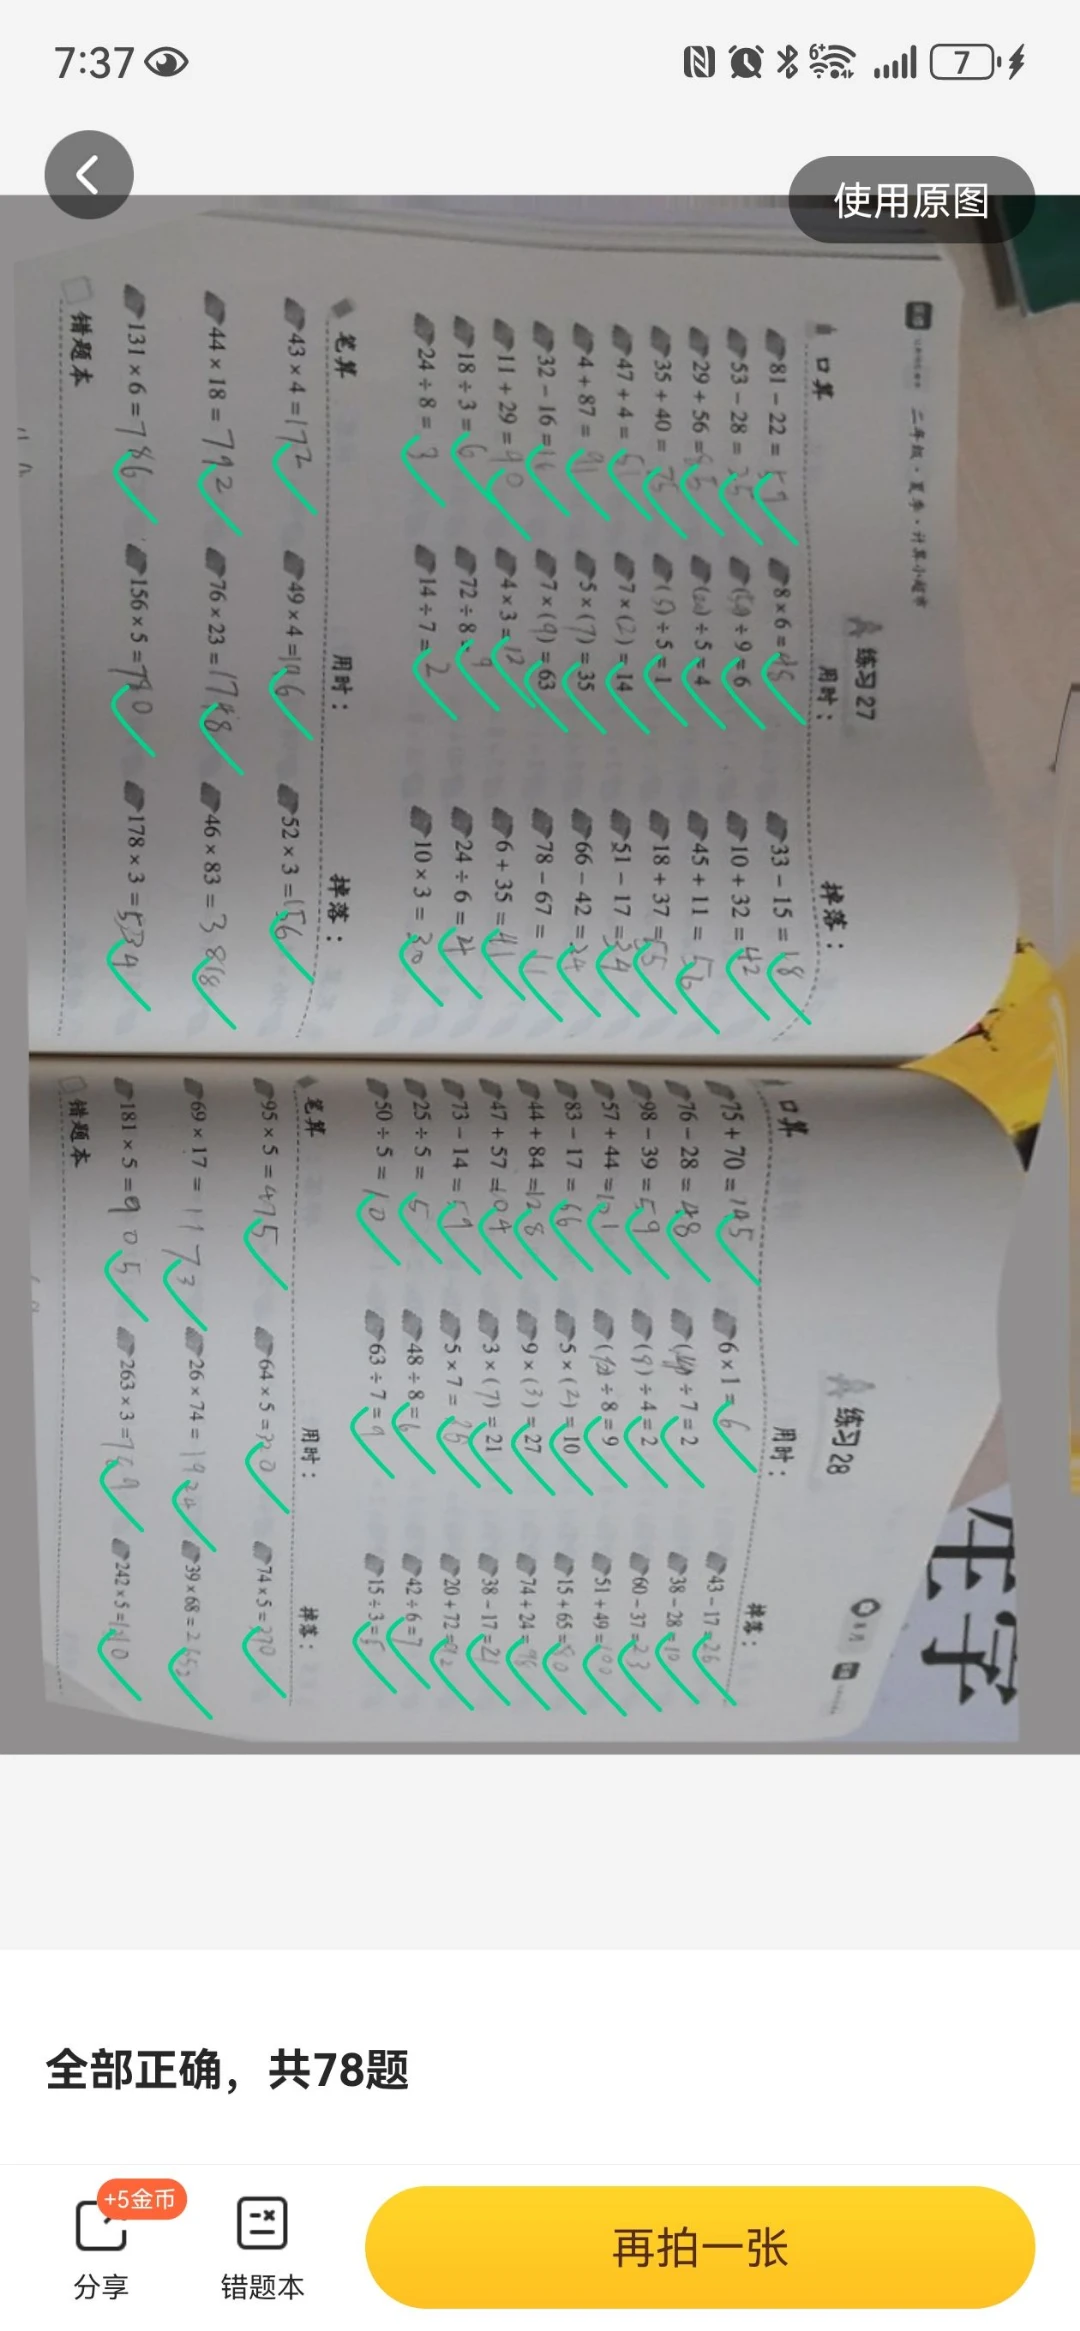 7:37
7
使用原图
二年级·夏季·计算小超市
练习 27
口算 用时： 掉落：
81 - 22 = 59 8 × 6 = 48 33 - 15 = 18
53 - 28 = 25 (54) ÷ 9 = 6 10 + 32 = 42
29 + 56 = 85 (20) ÷ 5 = 4 45 + 11 = 56
35 + 40 = 75 (5) ÷ 5 = 1 18 + 37 = 55
47 + 4 = 51 7 × (2) = 14 51 - 17 = 34
4 + 87 = 91 5 × (7) = 35 66 - 42 = 24
32 - 16 = 16 7 × (9) = 63 78 - 67 = 11
11 + 29 = 40 4 × 3 = 12 6 + 35 = 41
18 ÷ 3 = 6 72 ÷ 8 = 9 24 ÷ 6 = 4
24 ÷ 8 = 3 14 ÷ 7 = 2 10 × 3 = 30
笔算 用时： 掉落：
43 × 4 = 172 49 × 4 = 196 52 × 3 = 156
44 × 18 = 792 76 × 23 = 1748 46 × 83 = 3818
131 × 6 = 786 156 × 5 = 780 178 × 3 = 534
错题本
8月
练习 28
口算 用时： 掉落：
75 + 70 = 145 6 × 1 = 6 43 - 17 = 26
76 - 28 = 48 (14) ÷ 7 = 2 38 - 28 = 10
98 - 39 = 59 (8) ÷ 4 = 2 60 - 37 = 23
57 + 44 = 101 (72) ÷ 8 = 9 51 + 49 = 100
83 - 17 = 66 5 × (2) = 10 15 + 65 = 80
44 + 84 = 128 9 × (3) = 27 74 + 24 = 98
47 + 57 = 104 3 × (7) = 21 38 - 17 = 21
73 - 14 = 59 5 × 7 = 35 20 + 72 = 92
25 ÷ 5 = 5 48 ÷ 8 = 6 42 ÷ 6 = 7
50 ÷ 5 = 10 63 ÷ 7 = 9 15 ÷ 3 = 5
笔算 用时： 掉落：
95 × 5 = 475 64 × 5 = 320 74 × 5 = 370
69 × 17 = 1173 26 × 74 = 1924 39 × 68 = 2652
181 × 5 = 905 263 × 3 = 789 242 × 5 = 1210
错题本
全部正确，共78题
+5金币
分享
错题本
再拍一张